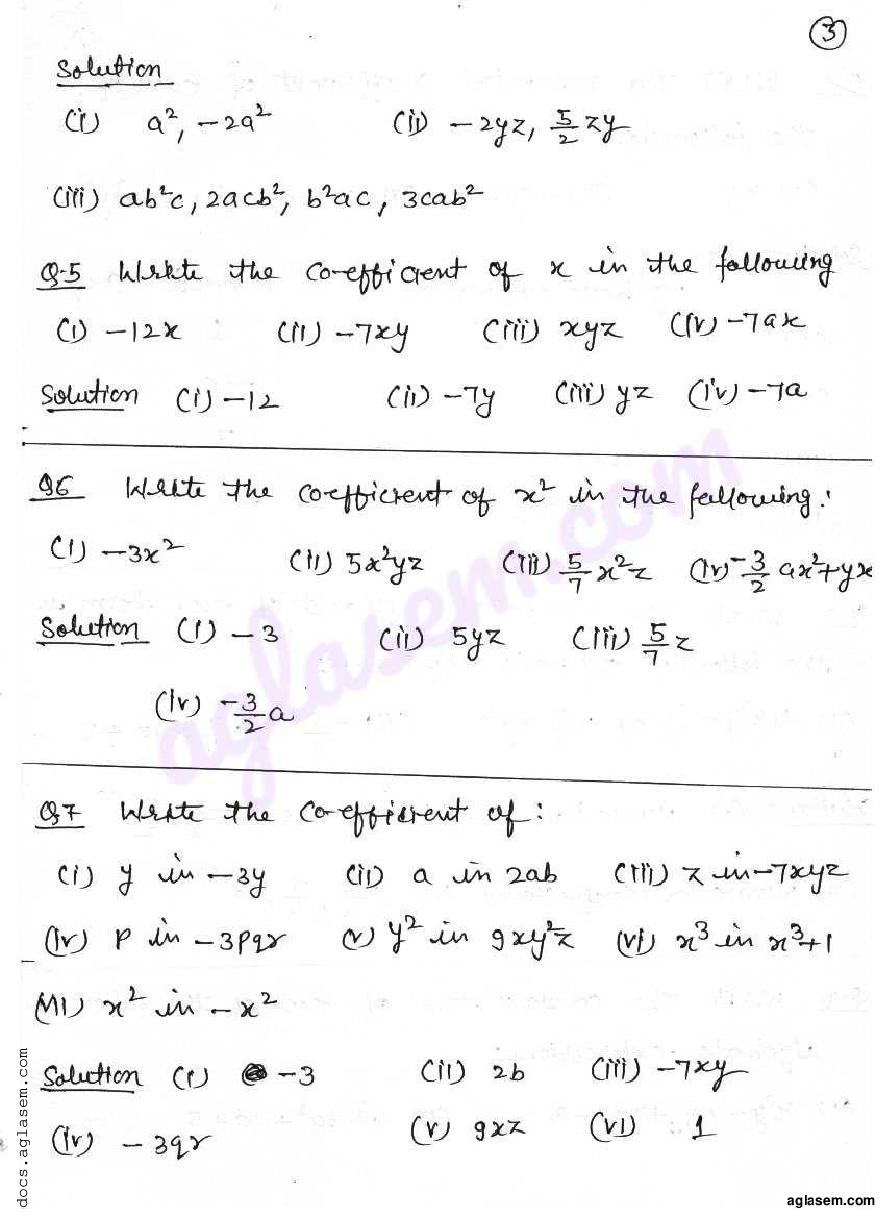 3
Solution
(i) a², -2a² (ii) -2yz, 5/2 zy
(iii) ab²c, 2acb², b²ac, 3cab²
Q-5 Write the co-efficient of x in the following
(i) -12x (ii) -7xy (iii) xyz (iv) -7ax
Solution (i) -12 (ii) -7y (iii) yz (iv) -7a
Q6 Write the coefficient of x² in the following:
(i) -3x² (ii) 5x²yz (iii) 5/7 x²z (iv) -3/2 ax²+yx
Solution (i) -3 (ii) 5yz (iii) 5/7 z
(iv) -3/2 a
Q7 Write the co-efficient of:
(i) y in -3y (ii) a in 2ab (iii) z in -7xyz
(iv) p in -3pqr (v) y² in 9xy²z (vi) x³ in x³+1
(vii) x² in -x²
Solution (i) -3 (ii) 2b (iii) -7xy
(iv) -3qr (v) 9xz (vi) 1
aglasem.com
docs.aglasem.com
aglasem.com